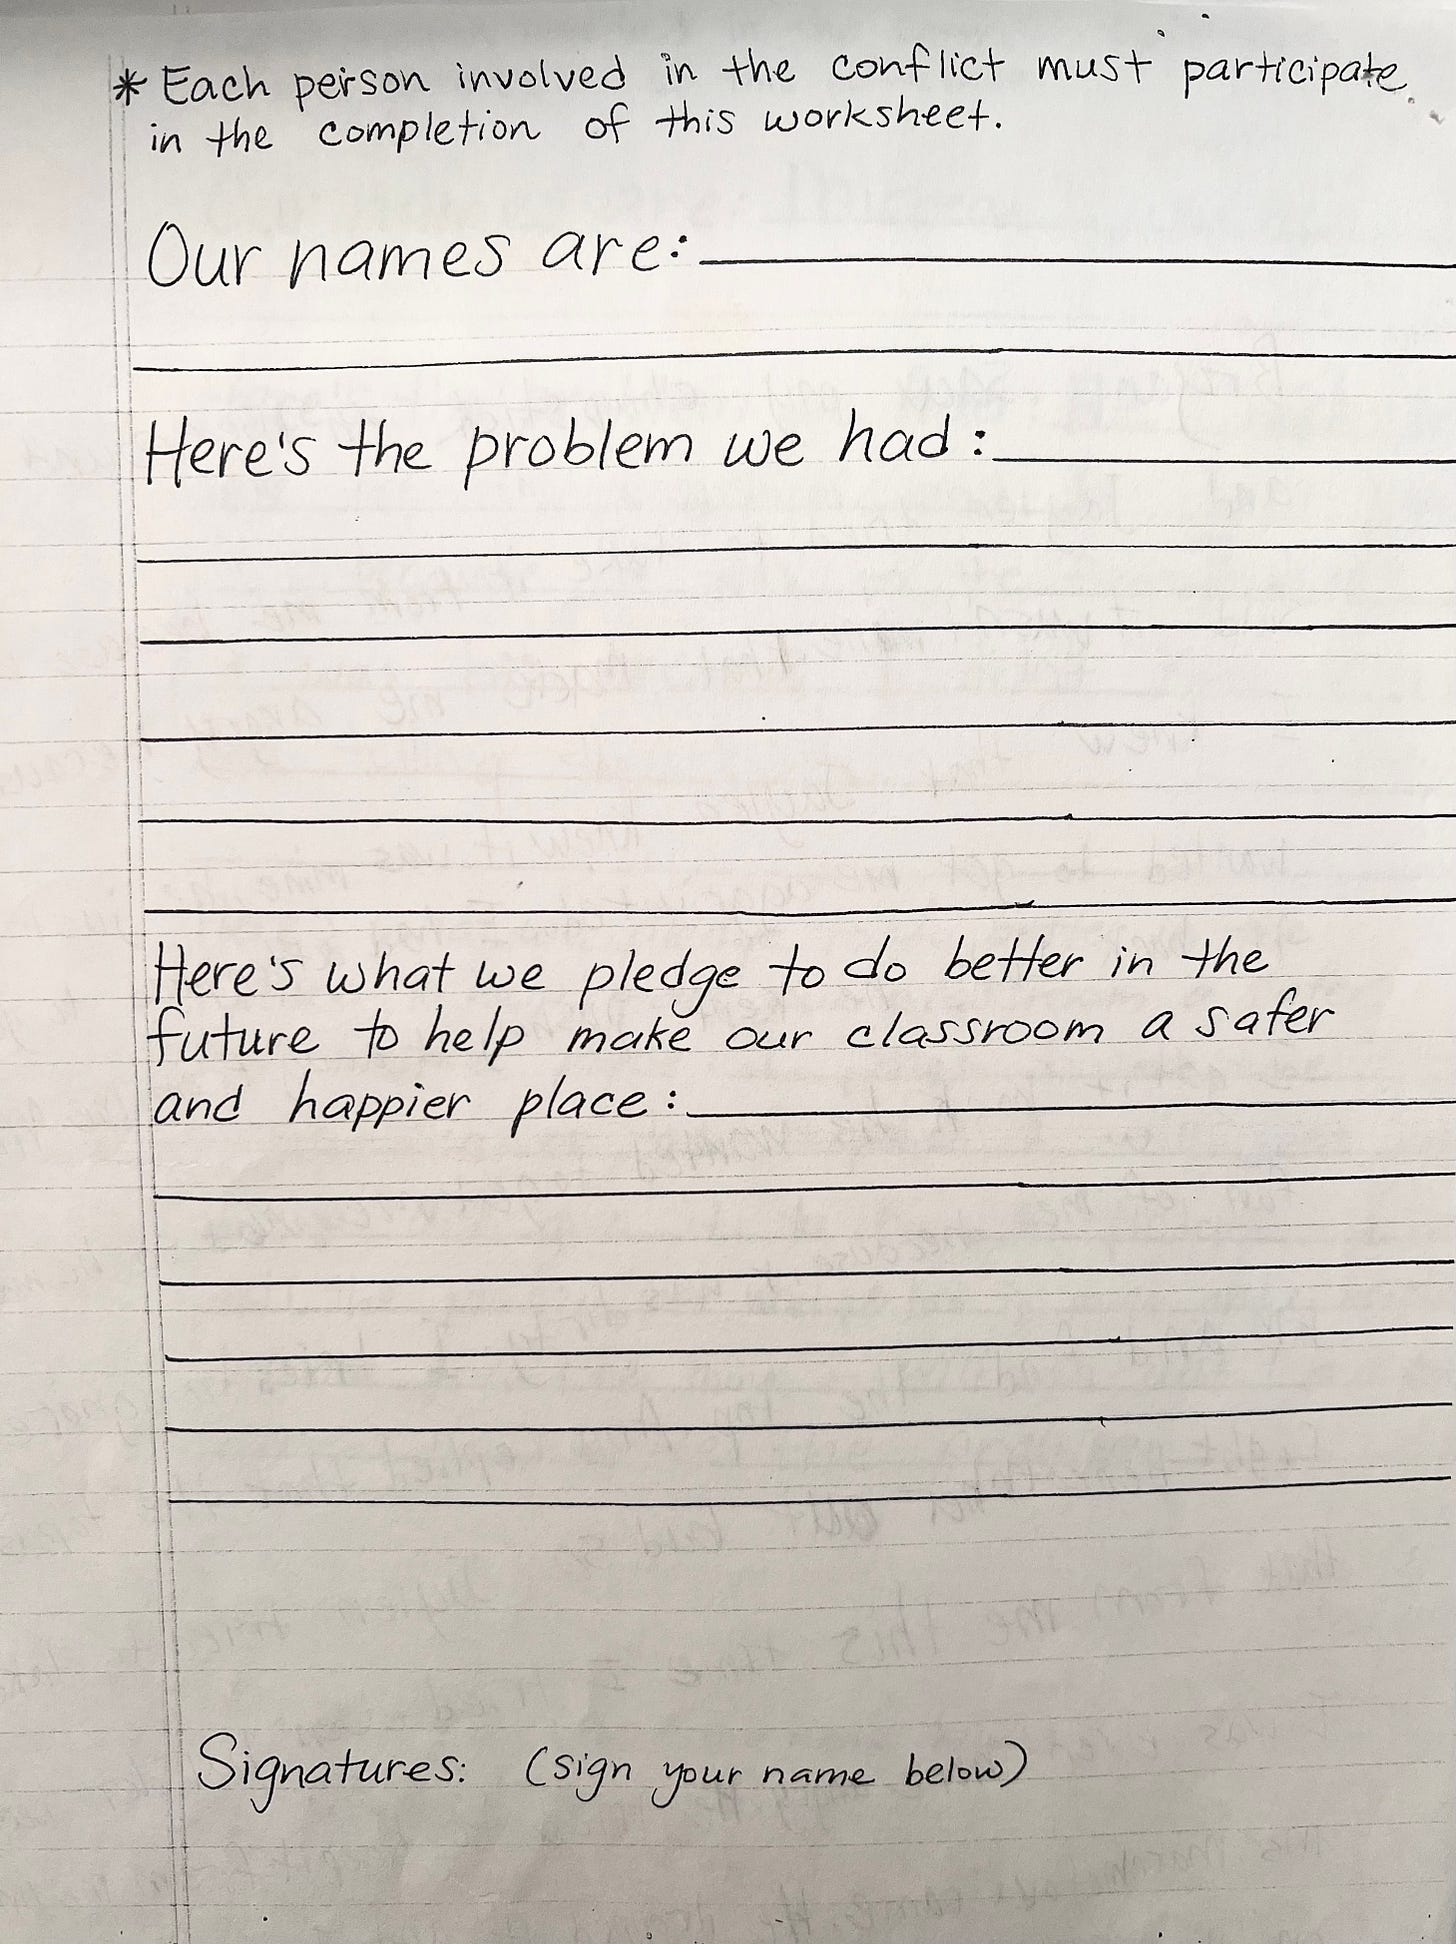 * Each person involved in the conflict must participate
in the completion of this worksheet.
Our names are:
Here's the problem we had:
Here's what we pledge to do better in the
future to help make our classroom a safer
and happier place:
Signatures: (sign your name below)